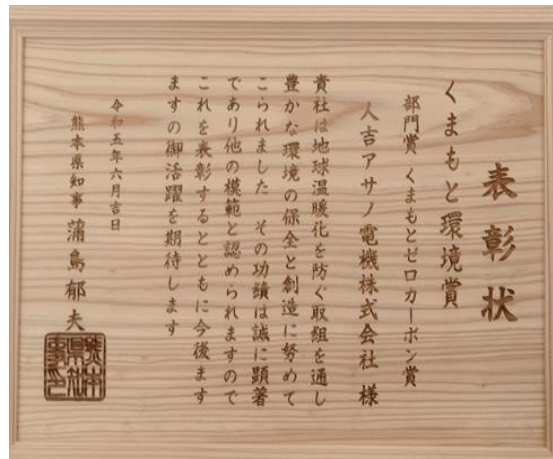 表彰状
くまもと環境賞
部門賞 くまもとゼロカーボン賞
人吉アサノ電機株式会社 様
貴社は地球温暖化を防ぐ取組を通し
豊かな環境の保全と創造に努めて
こられました その功績は誠に顕著
であり他の模範と認められますので
これを表彰するとともに今後ます
ますの御活躍を期待します
令和五年六月吉日
熊本県知事 蒲島郁夫
熊本県知事之印